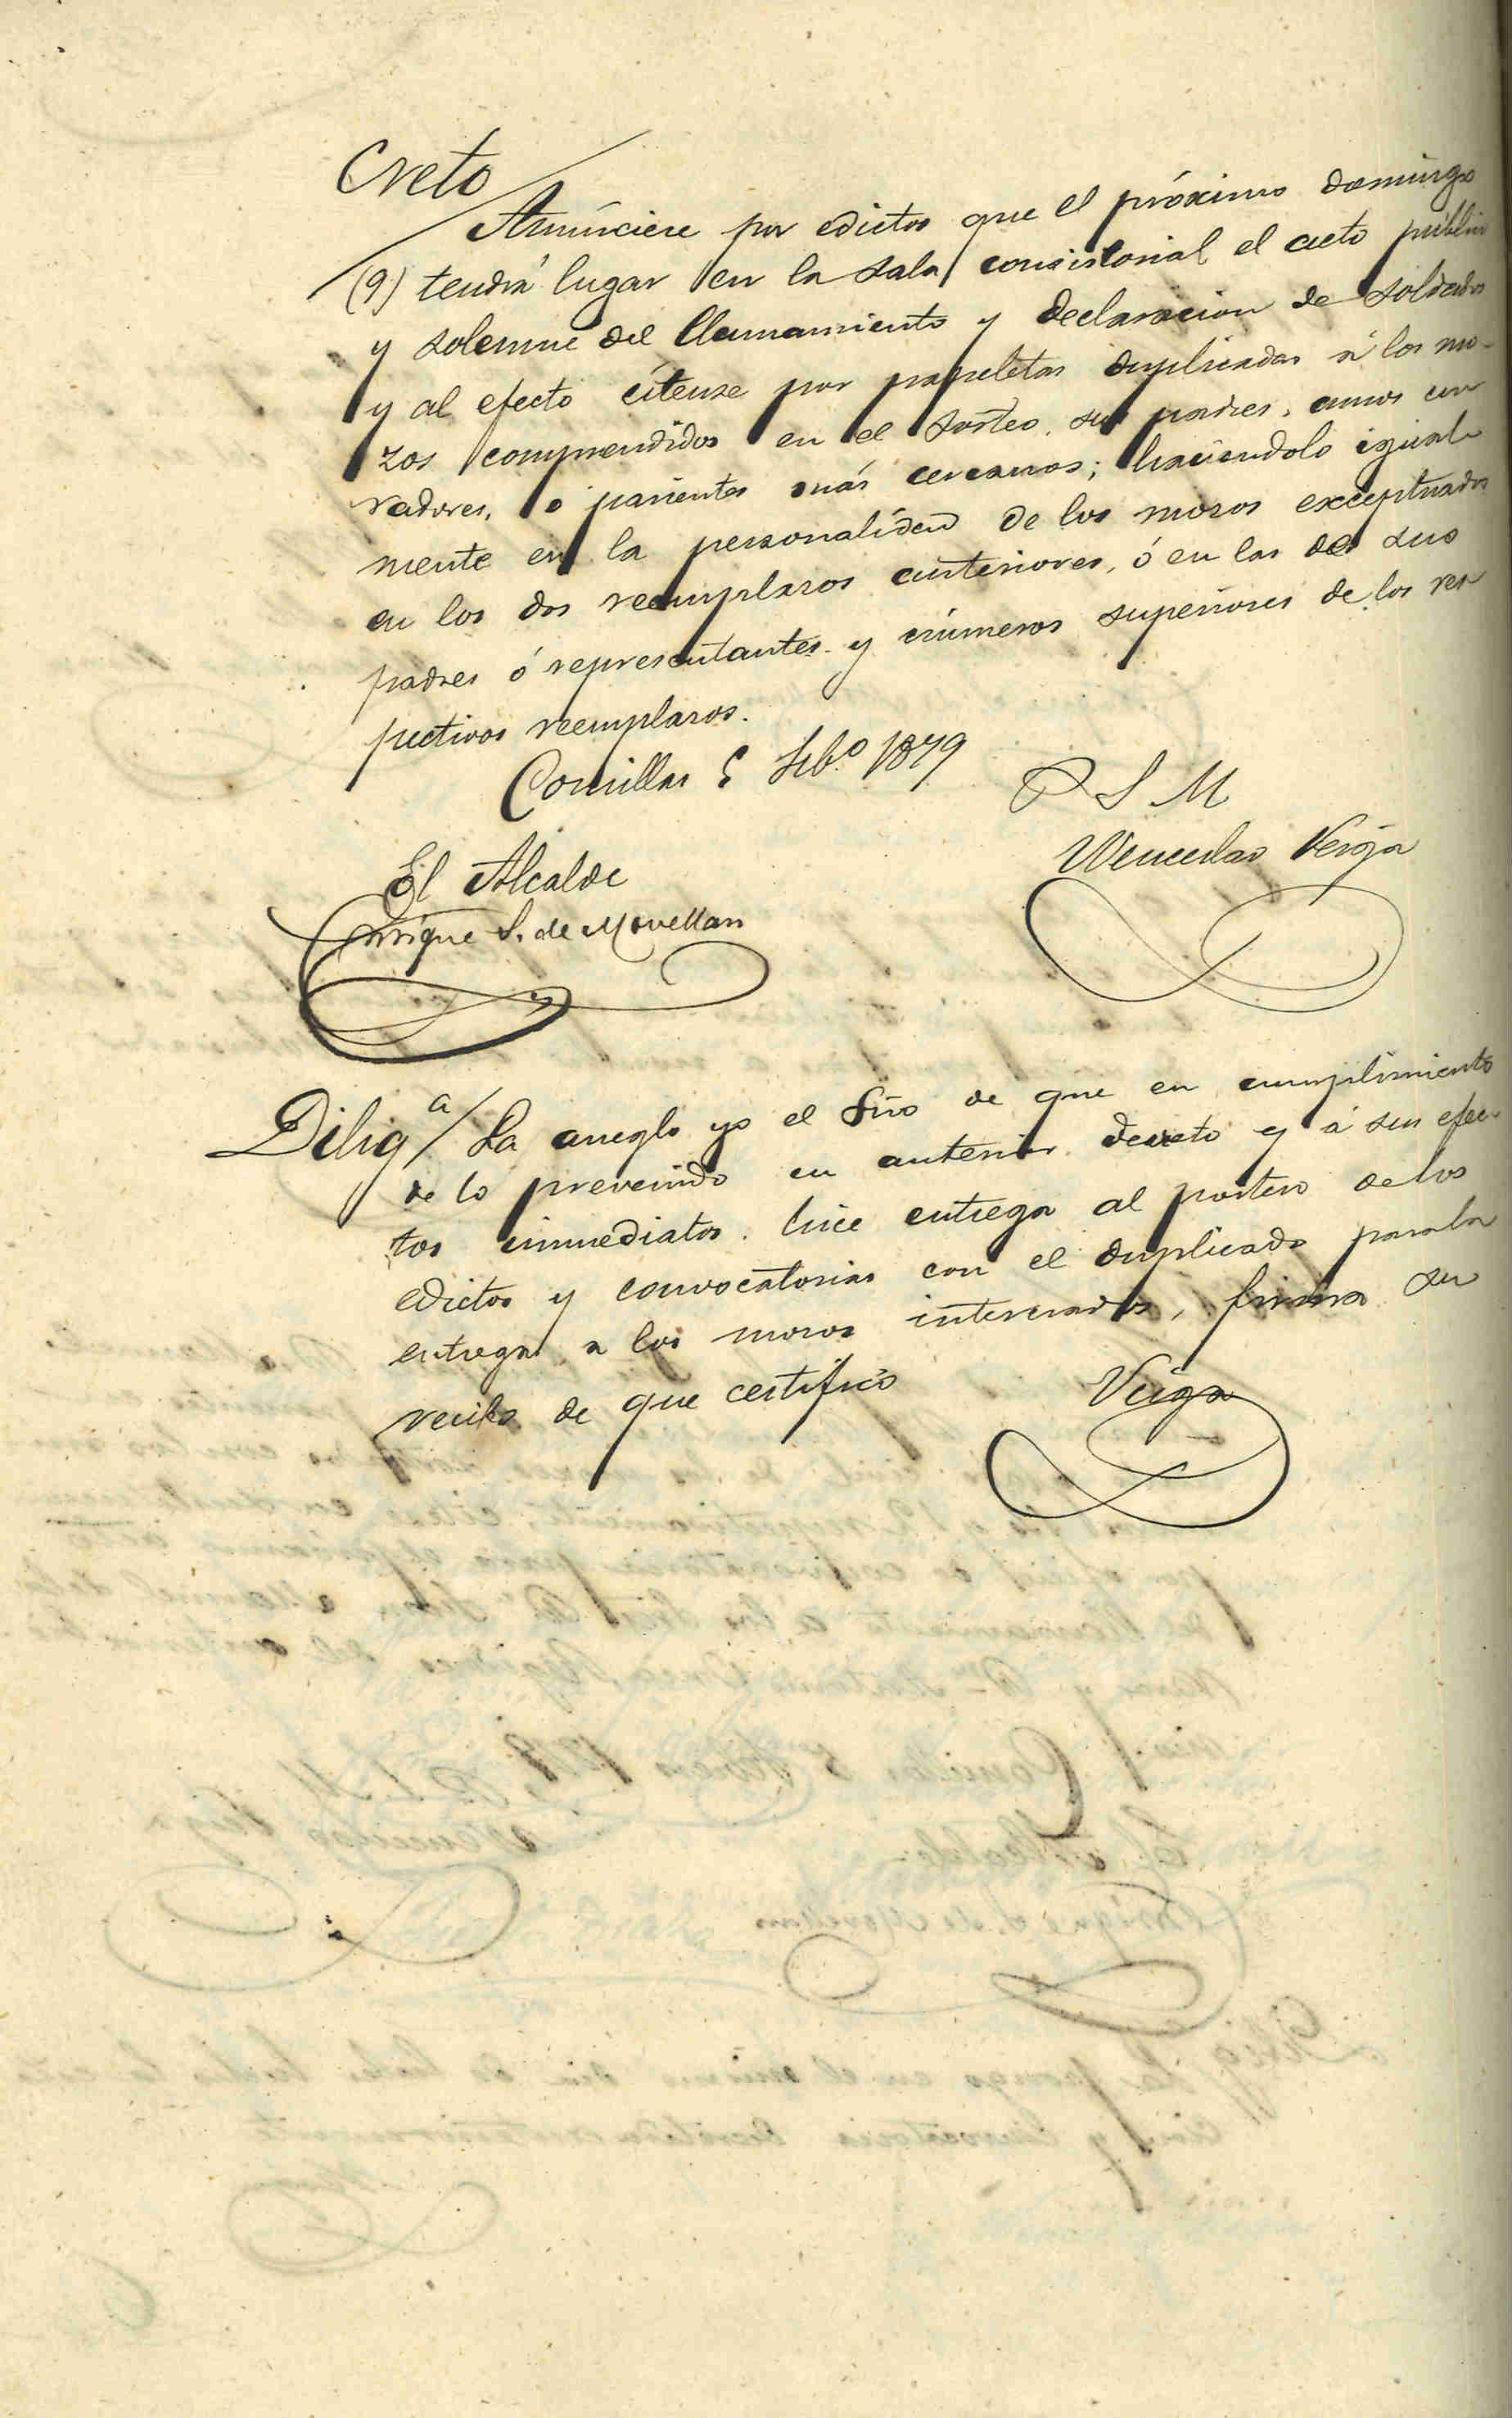 Creto
Anúnciese por edictos que el próximo domingo
(9) tendrá lugar en la sala consistorial el acto público
y solemne del llamamiento y declaracion de soldados
y al efecto cítense por papeletas duplicadas á los mo-
zos comprendidos en el sorteo, sus padres, amos cu
radores, o parientes más cercanos; haciendolo igual-
mente en la personalidad de los mozos exceptuados
en los dos reemplazos anteriores, ó en las de sus
padres ó representantes y números superiores de los res
pectivos reemplazos.
Comillas 5 Febº 1879
P S M
El Alcalde
Wenceslao Veiga
Enrique S. de Movellan
Diligª / La arreglo yo el Srio de que en cumplimiento
de lo prevenido en anterior decreto y á sus efec-
tos inmediatos. hice entrega al portero de los
edictos y convocatorias con el duplicado para la
entrega a los mozos interesados, firma su
recibo de que certifico
Veiga